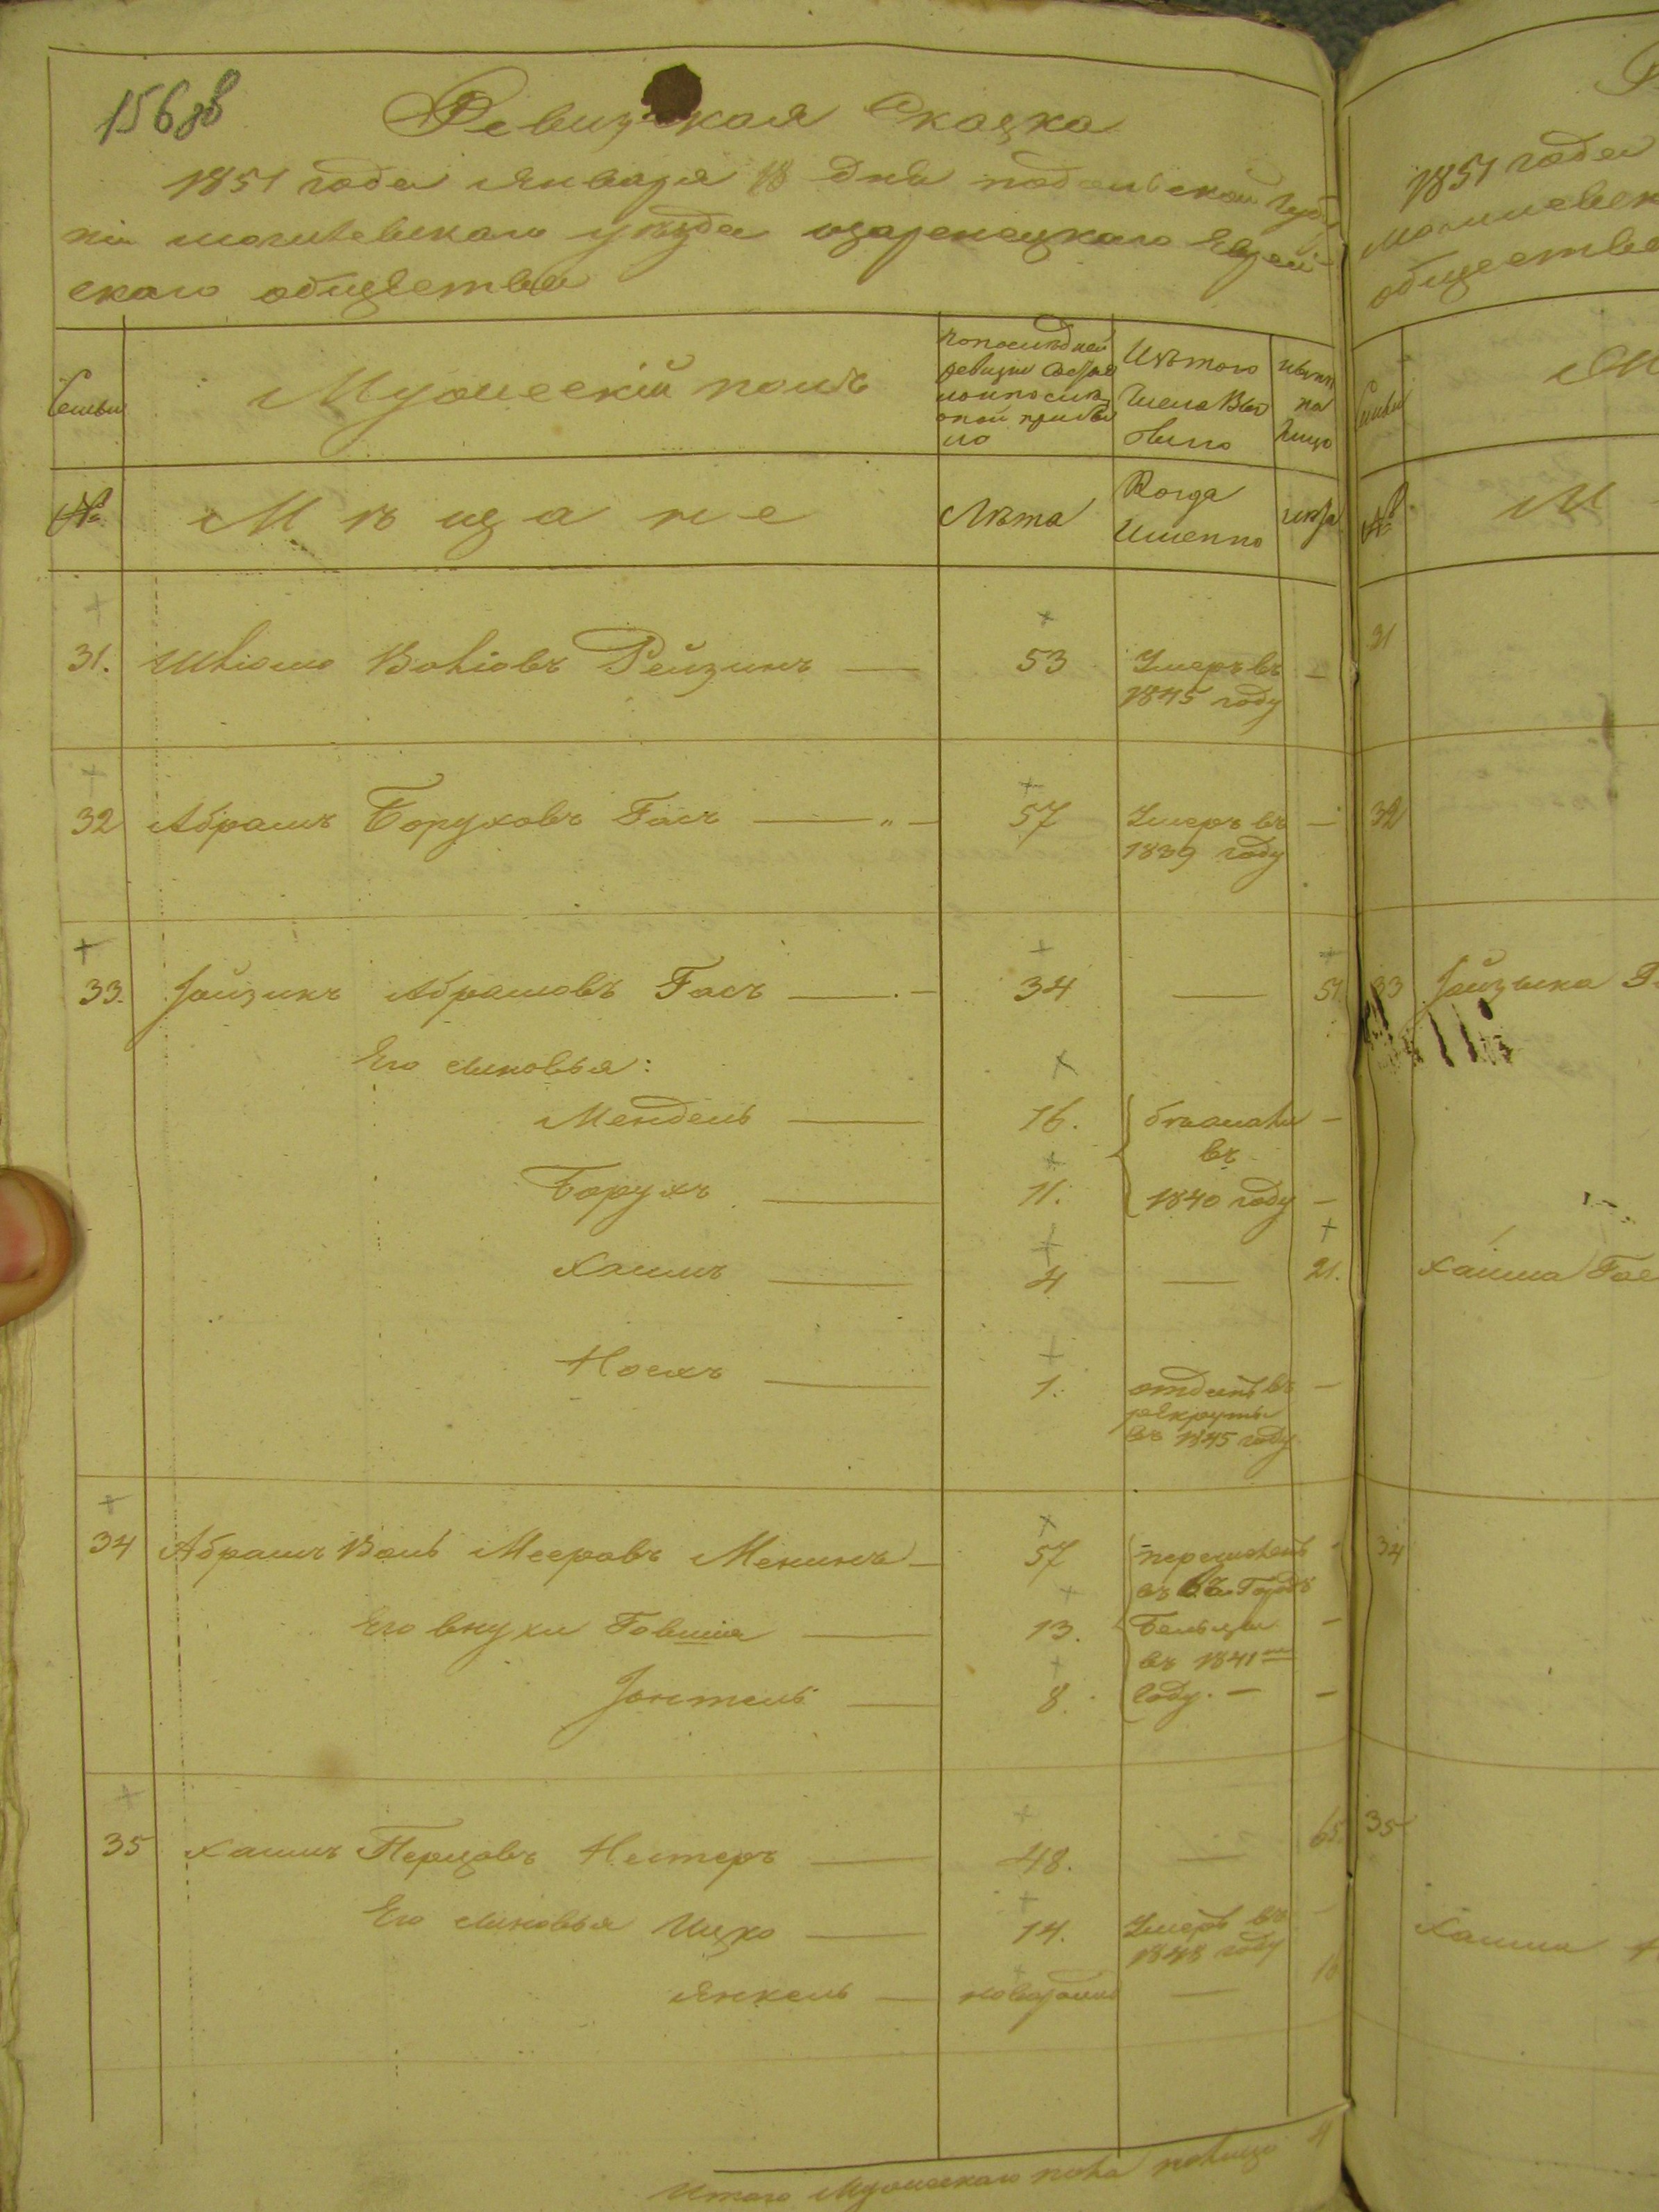 156 об
Ревизская Сказка
1851 года Января 18 дня подольской губер
ніи могилевскаго уѣзда озаренецкаго Еврей
скаго общества
Семьи
Мужескій полъ
По последней
ревизии состоя
ло и после
оной прибы
ло
Изъ того
числа Вы
было
Ныне
на
лицо
№
Мѣщане
Лѣта
Когда
Именно
лѣта
31. ШліомаВоліовъ Рейзинъ — 53 Умеръ въ —
1845 году
32 Абрамъ Боруховъ Гасъ — 57 Умеръ въ —
1839 году
33. Іойзикъ Абрамовъ Гасъ — 34 — 51
Его сыновья:
Мендель — 16. бѣжали —
въ
Борухъ — 11. 1840 году —
Хаимъ — 4 — 21.
Носихъ — 1. отданъ въ —
рекруты
въ 1845 году
34 Абрамъ Воль Мееровъ Менинъ — 57 перечислены
въ Городъ
Его внуки Говшія — 13. Бельцы —
въ 1841 мъ
Іонтель — 8. году. — —
35 Хаимъ Перцовъ Нестеръ — 48. — 65
Его сыновья Ицко — 14. Умеръ въ —
1848 году
Янкель — новорожд — 16
Итого Мужескаго пола налицо 4
1851 года
могилевск
общества
Семьи
№
31
32
33 Іойзыка
Хаима Гас
34
35
Хаима